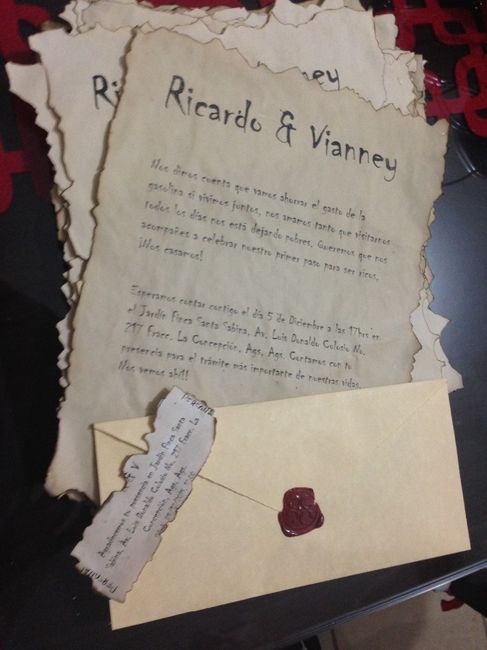 Ricardo & Vianney
Nos dimos cuenta que vamos ahorrar el gasto de la
gasolina si vivimos juntos, nos amamos tanto que visitarnos
todos los días nos está dejando pobres. Queremos que nos
acompañes a celebrar nuestro primer paso para ser ricos.
¡Nos casamos!
Esperamos contar contigo el día 5 de Diciembre a las 17hrs en
el Jardín Finca Santa Sabina, Av. Luis Donaldo Colosio No.
217 Fracc. La Concepción, Ags, Ags. Contamos con tu
presencia para el trámite más importante de nuestras vidas.
Nos vemos ahí!!
nney
Ri
Agradecemos tu presencia en Jardín Finca Santa
Sabina, Av. Luis Donaldo Colosio No. 217 Fracc. La
Concepción, Ags, Ags.